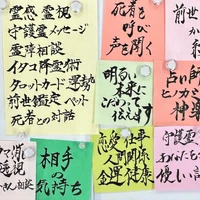 霊感 霊視
守護霊メッセージ
霊障相談
イタコ降霊術
タロットカード 運勢
前世鑑定 ペット
死者との対話
死者を
呼び
声を聞く
前世か
明るい
未来に
こだわって
伝えます
占い師
神業
相手
の
気持ち
恋愛 仕事
人間関係
金運 健康
守護霊
あなたを
優しい
透視